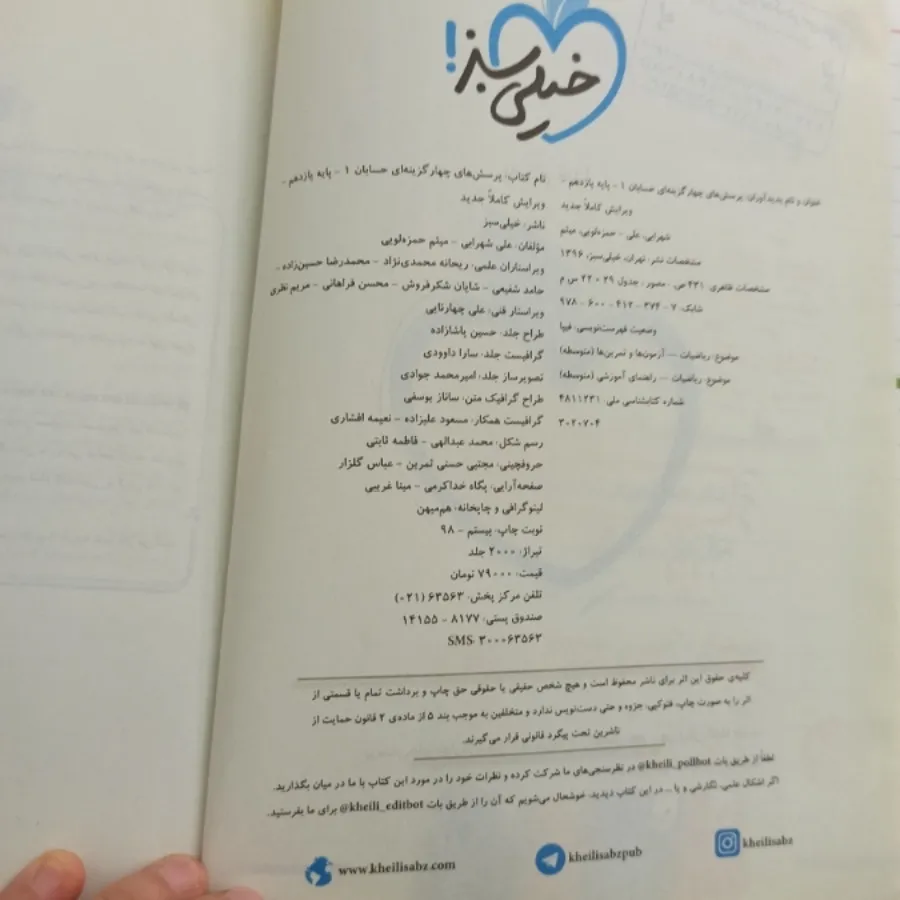 خیلی سبز!
نام کتاب: پرسش‌های چهارگزینه‌ای حسابان ۱ - پایه یازدهم -
ویرایش کاملاً جدید
ناشر: خیلی‌سبز
مؤلفان: علی شهرابی - میثم حمزه‌لویی
ویراستاران علمی: ریحانه محمدی‌نژاد - محمدرضا حسین‌زاده -
حامد شفیعی - شایان شکرفروش - محسن فراهانی - مریم نظری
ویراستار فنی: علی چهارتایی
طراح جلد: حسین پاشازاده
گرافیست جلد: سارا داوودی
تصویرساز جلد: امیرمحمد جوادی
طراح گرافیک متن: ساناز یوسفی
گرافیست همکار: مسعود علیزاده - نعیمه افشاری
رسم شکل: محمد عبدالهی - فاطمه ثابتی
حروفچینی: مجتبی حسنی ثمرین - عباس گلزار
صفحه‌آرایی: پگاه خداکرمی - مینا غریبی
لیتوگرافی و چاپخانه: هم‌میهن
نوبت چاپ: بیستم - ۹۸
تیراژ: ۲۰۰۰ جلد
قیمت: ۷۹۰۰۰ تومان
تلفن مرکز پخش: ۶۳۵۶۳ (۰۲۱)
صندوق پستی: ۸۱۷۷ - ۱۴۱۵۵
SMS: ۳۰۰۰۶۳۵۶۳
عنوان و نام پدیدآوران: پرسش‌های چهارگزینه‌ای حسابان ۱ - پایه یازدهم -
ویرایش کاملاً جدید
شهرابی، علی - حمزه‌لویی، میثم
مشخصات نشر: تهران، خیلی‌سبز، ۱۳۹۶
مشخصات ظاهری: ۴۳۱ ص. مصور، جدول ۲۹ × ۲۲ س م
شابک: ۷ - ۳۷۴ - ۴۱۲ - ۶۰۰ - ۹۷۸
وضعیت فهرست‌نویسی: فیپا
موضوع: ریاضیات -- آزمون‌ها و تمرین‌ها (متوسطه)
موضوع: ریاضیات -- راهنمای آموزشی (متوسطه)
شماره کتابشناسی ملی: ۴۸۱۱۲۳۱
۳۰۲۰۷۰۴
کلیه‌ی حقوق این اثر برای ناشر محفوظ است و هیچ شخص حقیقی یا حقوقی حق چاپ و برداشت تمام یا قسمتی از
اثر را به صورت چاپ، فتوکپی، جزوه و حتی دست‌نویس ندارد و متخلفین به موجب بند ۵ از ماده‌ی ۲ قانون حمایت از
ناشرین تحت پیگرد قانونی قرار می‌گیرند.
لطفاً از طریق بات @kheili_pollbot در نظرسنجی‌های ما شرکت کرده و نظرات خود را در مورد این کتاب با ما در میان بگذارید.
اگر اشکال علمی، نگارشی و یا ... در این کتاب دیدید، خوشحال می‌شویم که آن را از طریق بات @kheili_editbot برای ما بفرستید.
www.kheilisabz.com
kheilisabzpub
kheilisabz